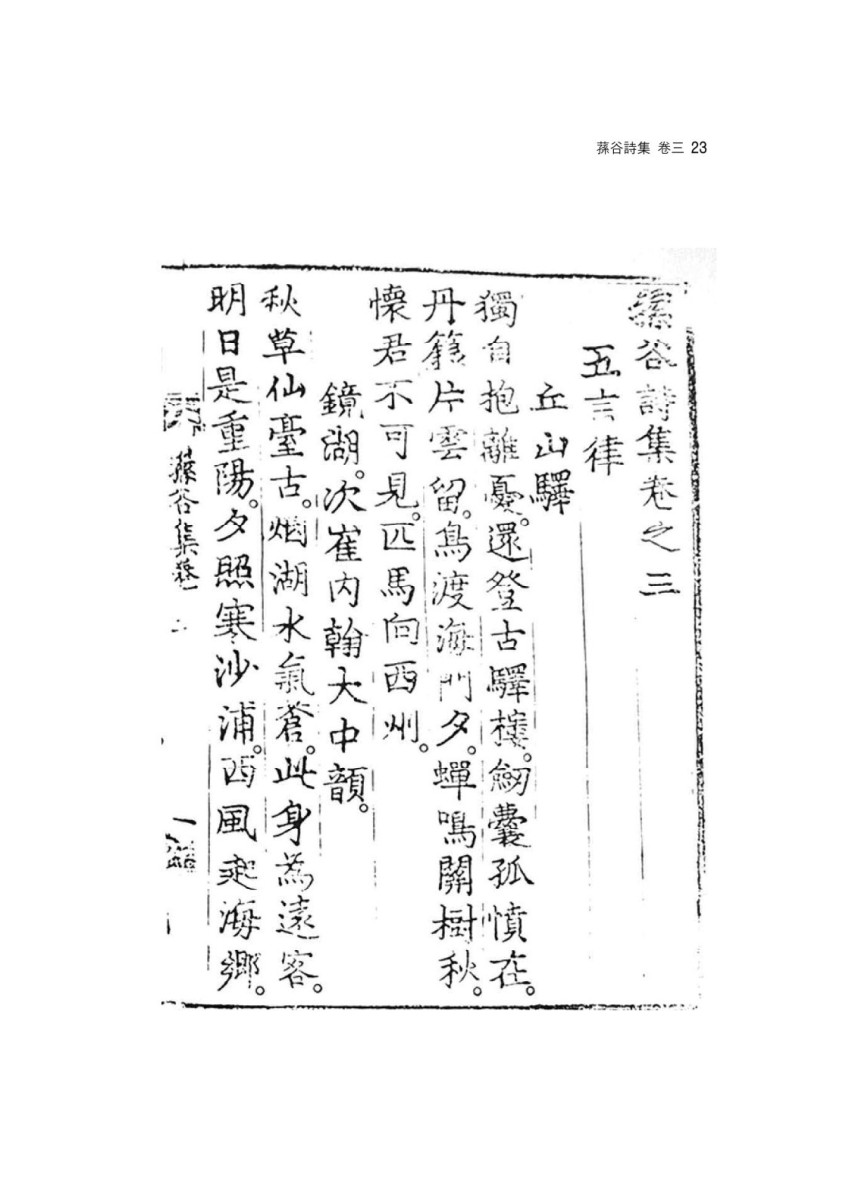 蓀谷詩集 卷三 23
蓀谷詩集卷之三
五言律
丘山驛
獨自抱離憂。還登古驛樓。劒囊孤憤在。
丹籙片雲留。鳥渡海門夕。蟬鳴關樹秋。
懷君不可見。匹馬向西州。
鏡湖。次崔內翰大中韻。
秋草仙臺古。烟湖水氣蒼。此身為遠客。
明日是重陽。夕照寒沙浦。西風起海鄉。
蓀谷集卷 一